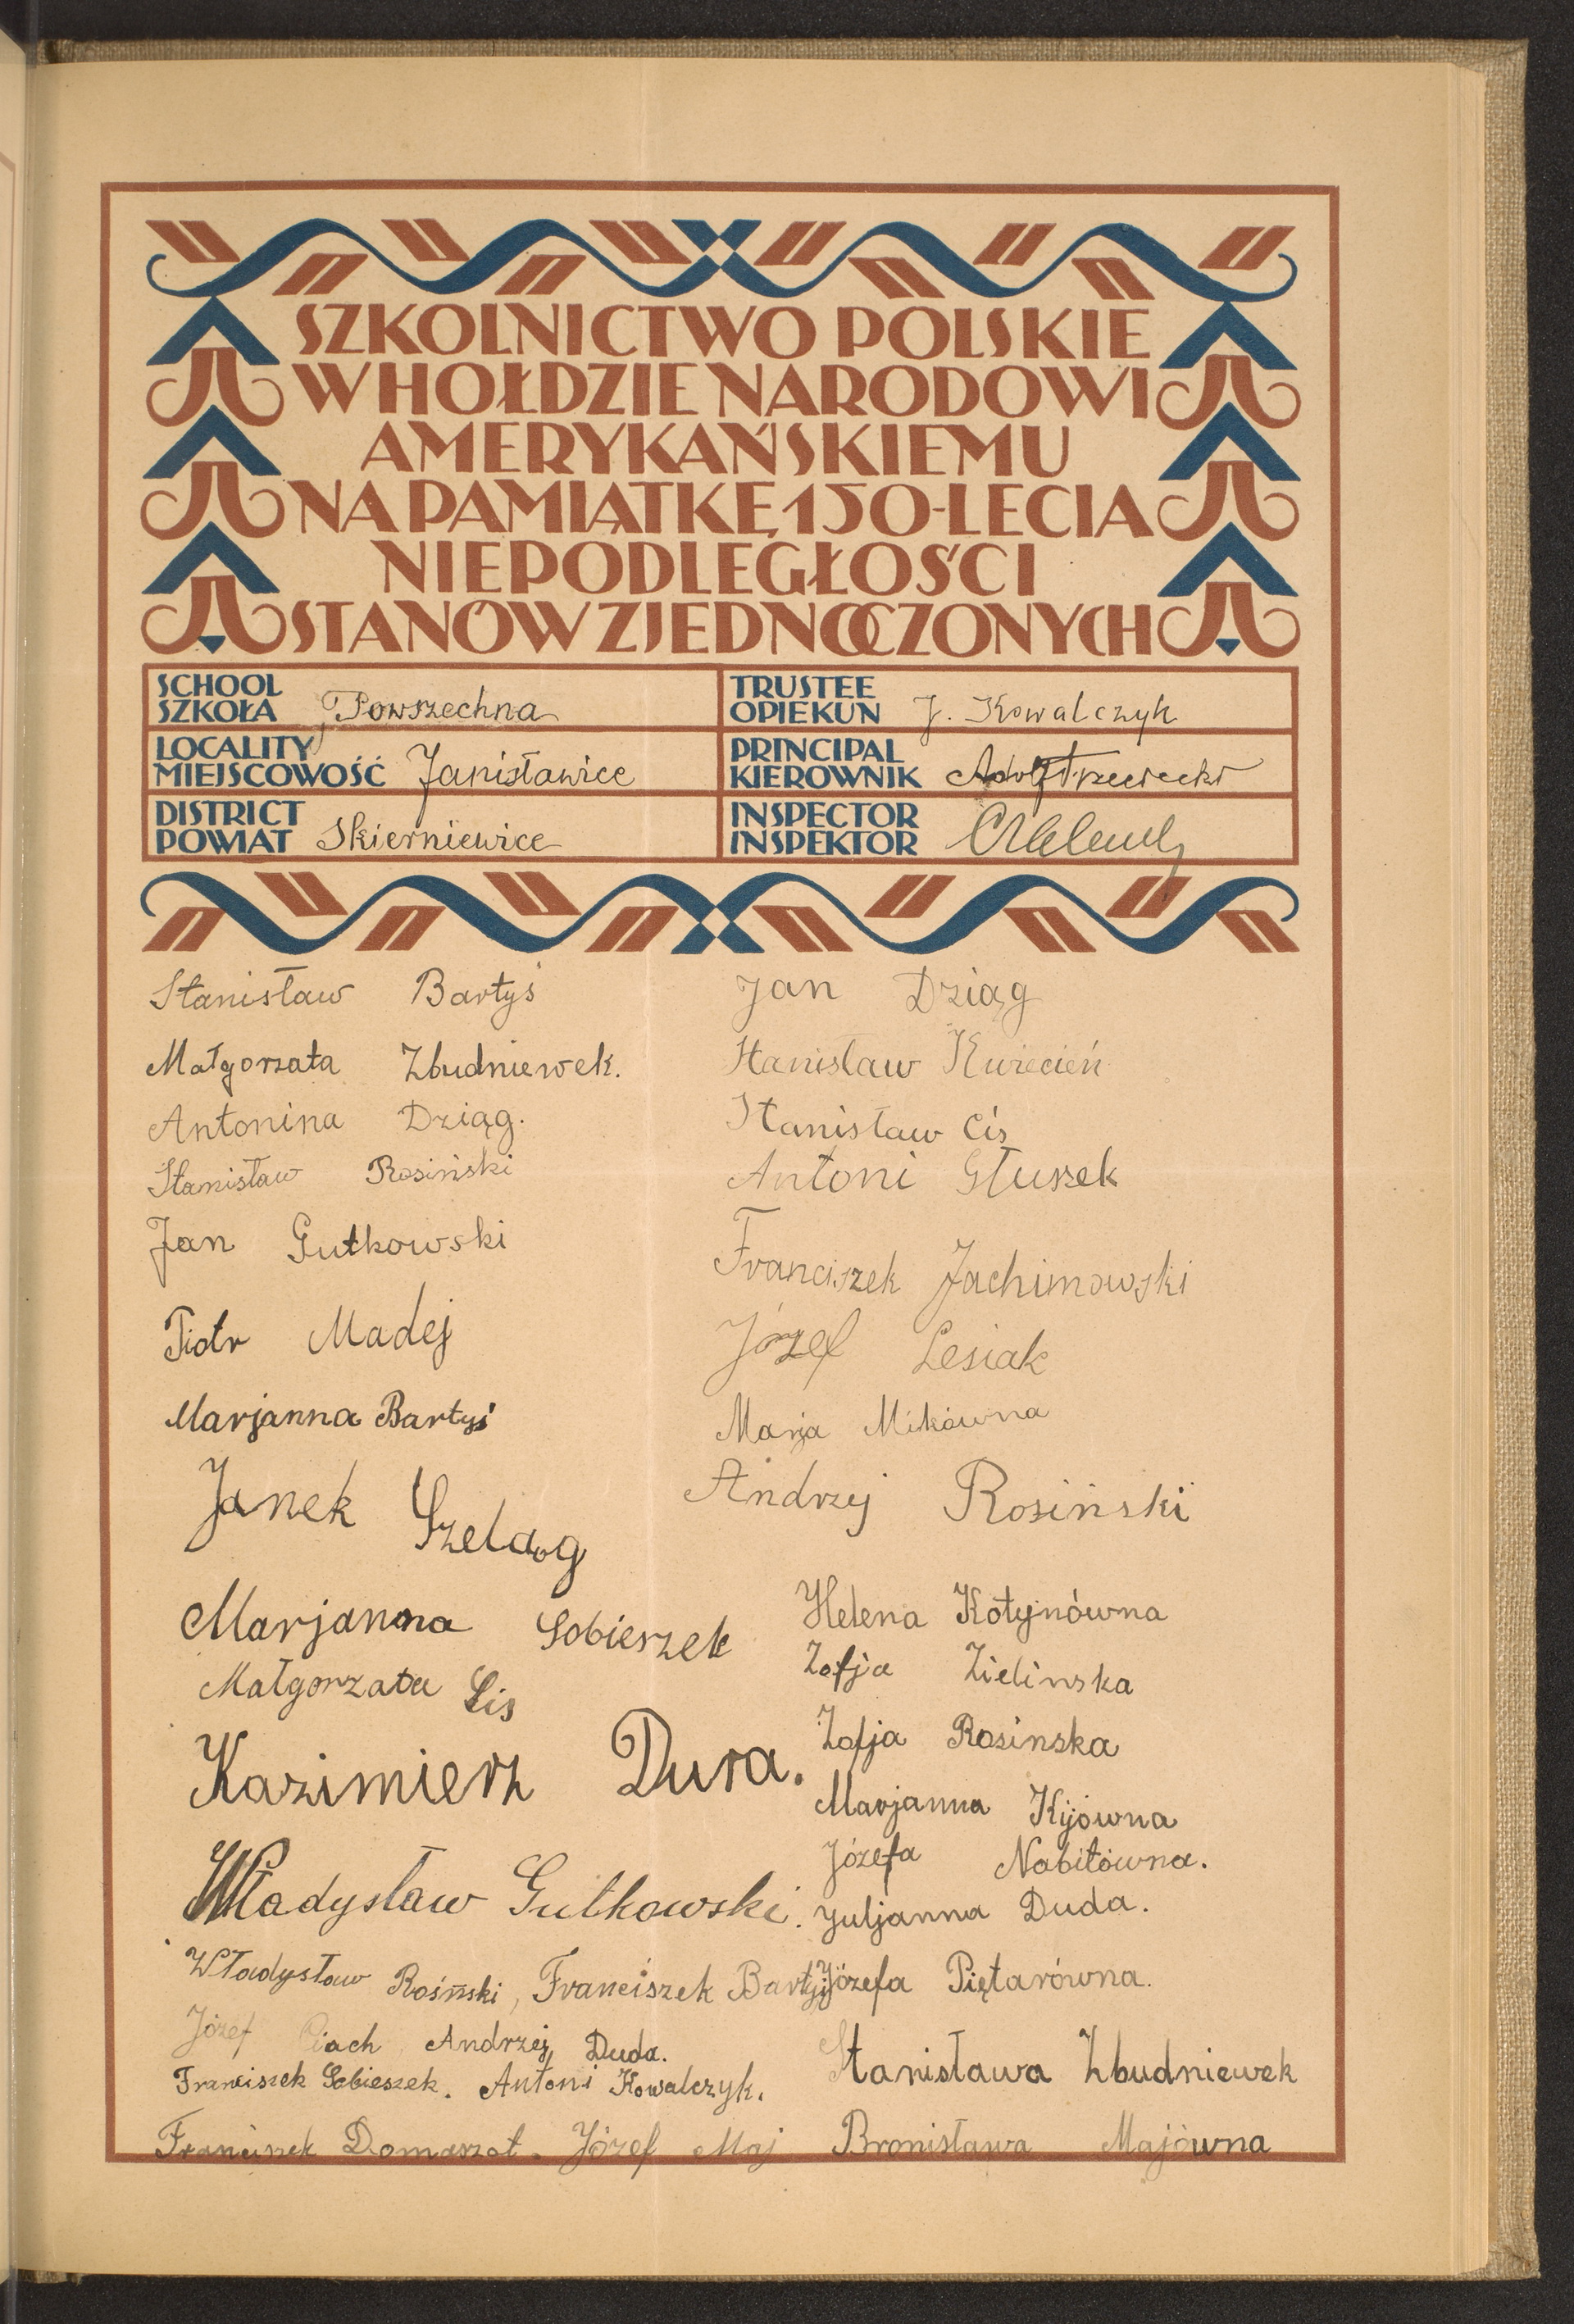 SZKOLNICTWO POLSKIE
W HOŁDZIE NARODOWI
AMERYKAŃSKIEMU
NA PAMIĄTKĘ 150-LECIA
NIEPODLEGŁOŚCI
STANÓW ZJEDNOCZONYCH
SCHOOL
SZKOŁA Powszechna
LOCALITY
MIEJSCOWOŚĆ Janisławice
DISTRICT
POWIAT Skierniewice
TRUSTEE
OPIEKUN J. Kowalczyk
PRINCIPAL
KIEROWNIK Adolf Trzeciecki
INSPECTOR
INSPEKTOR
Stanisław Bartyś
Małgorzata Zbudniewek.
Antonina Dziąg.
Stanisław Rosiński
Jan Gutkowski
Piotr Madej
Marjanna Bartyś
Janek Szeląg
Marjanna Sobieszek
Małgorzata Lis
Kazimierz Dura.
Władysław Gutkowski.
Władysław Rośński, Franciszek Bartyś
Józef Ciach Andrzej Duda.
Franciszek Sobieszek. Antoni Kowalczyk.
Franciszek Domaszat. Józef Maj
Jan Dziąg
Stanisław Kwiecień
Stanisław Cis
Antoni Głuszek
Franciszek Jachimowski
Józef Lesiak
Marja Mikówna
Andrzej Rosiński
Helena Kotynówna
Zofja Zielinska
Zofja Rosinska
Marjanna Kijówna
Józefa Nabitówna.
Juljanna Duda.
Józefa Piętarówna.
Stanisława Zbudniewek
Bronisława Majówna